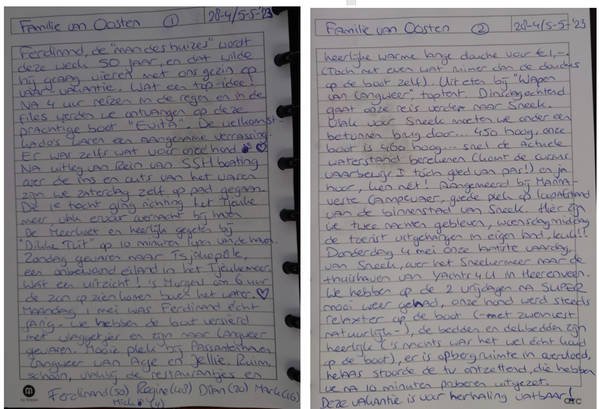 Familie van Oosten ① 28-4/5-5-'23
Ferdinand, de "man des huizes" wordt
deze week 50 jaar, en dat wilde
hij graag vieren met ons gezin op
vaar-vakantie. Wat een top-idee!
NA 4 uur reizen in de regen en in de
files werden we ontvangen op deze
prachtige boot "Evita". De welkomst-
kado's waren een aangename verrassing.
Er was zelfs wat voor onze hond ♡
NA uitleg van Rein van SSH boating
over de ins en outs van het varen
zijn we zaterdag zelf op pad gegaan.
De 1e tocht ging richting het Tjeuke
meer, vlak ervoor overnacht bij haven
De Meerkoet en heerlijk gegeten bij
"Dikke Tuit" op 10 minuten lopen van de haven.
Zondag gevaren naar Tsjûkepôlle,
een onbewoond eiland in het Tjeukemeer.
Wat een uitzicht! 's Morgens om 6 uur
de zon op zien komen boven het water. ♡
Maandag 1 mei was Ferdinand echt
jarig. We hebben de boot versierd
met vlaggetjes en zijn naar Langweer
gevaren. Mooie plek bij Passantenhaven
Langweer van Age en Jellie. Ruim,
schoon, vlakbij de restaurantjes en
Ferdinand (50) Regine (48) Dian (20) Mark (16)
Familie van Oosten ② 28-4/5-5-'23
heerlijke warme lange douche voor € 1,-.
(Toch net even wat ruimer dan de douches
op de boot zelf) Uit eten bij "Wapen
van Langweer" toptent. Dinsdagochtend
gaat onze reis verder naar Sneek.
Vlak voor Sneek moeten we onder een
betonnen brug door... 450 hoog, onze
boot is 460 hoog... snel de actuele
waterstand berekenen (komt de cursus
vaarbewijs 1 toch goed van pas!) en ja
hoor, kien net! Aangemeerd bij Marina
verte Campweer, goede plek op loopafstand
van de binnenstad van Sneek. Hier zijn
we twee nachten gebleven, woensdagmiddag
de toerist uitgehangen in eigen land, leuk!!
Donderdag 4 mei onze laatste vaardag
van Sneek, over het Sneekermeer naar de
thuishaven van Yachts 4 U in Heerenveen.
We hebben op de 2 vrijdagen NA SUPER
mooi weer gehad, onze hond werd steeds
relaxter op de boot (-met zwemvest
natuurlijk-), de bedden en dekbedden zijn
heerlijk ('s nachts was het wel echt koud
op de boot), er is opbergruimte in overvloed,
helaas stoorde de tv ontzettend, die hebben
we na 10 minuten proberen uitgezet.
Deze vakantie is voor herhaling vatbaar!